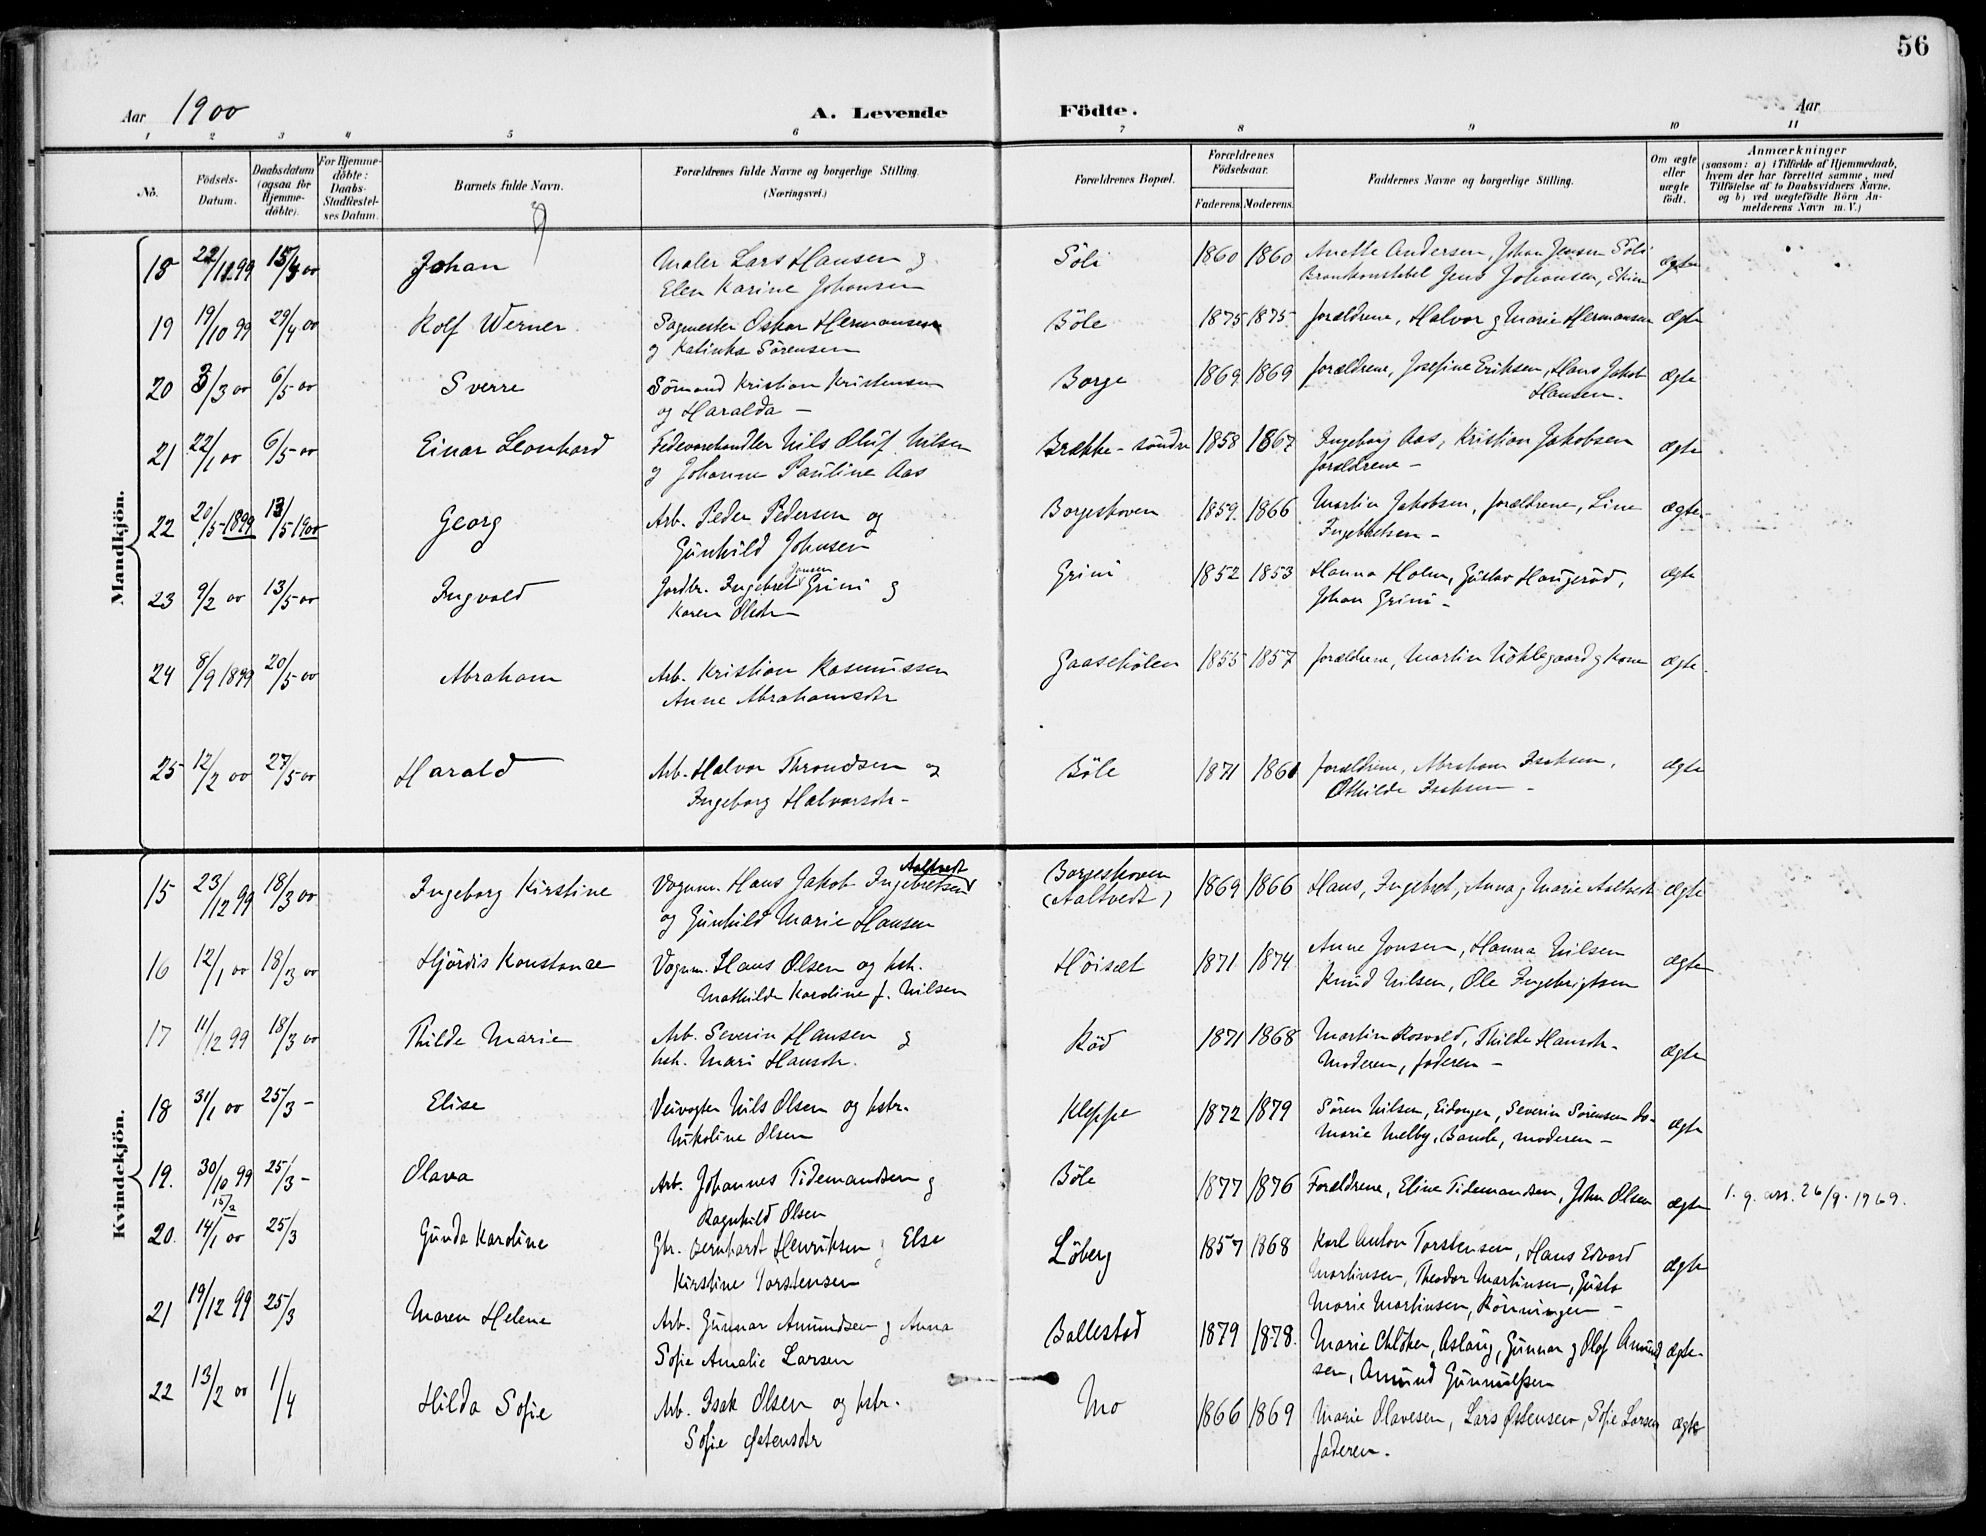 56
Aar 1900 A. Levende Födte. Aar
1 2 3 4 5 6 7 8 9 10 11
No. Födsels-Datum. Daabsdatum (ogsaa for Hjemmedöbte). For Hjemmedöbte: Daabs-Stadfæstelses Datum. Barnets fulde Navn. Forældrenes fulde Navne og borgerlige Stilling. (Næringsvei.) Forældrenes Bopæl. Forældrenes Födselsaar. Faderens. Moderens. Faddernes Navne og borgerlige Stilling. Om ægte eller uægte födt. Anmærkninger (saasom: a) i Tilfælde af Hjemmedaab, hvem der har forrettet samme, med Tilföielse af to Daabsvidners Navne. og b) ved uægtefödte Börn Anmelderens Navn m. V.)
Mandkjön.
18 22/12 99 15/4 00 Johan Maler Lars Hansen g Söli 1860 1860 Anette Andersen, Johan Jensen Söli ægte
Elen Karine Johansen Brankonstabel Jens Johansen, Skien
19 19/10 99 29/4 00 Rolf Werner Sagmester Oskar Hermansen Böle 1875 1875 forældrene, Halvor g Marie Hermansen ægte
g Katinka Sörensen
20 3/3 00 6/5 00 Sverre Sömand Kristian Kristensen Borge 1869 1869 forældrene, Josefine Eriksen, Hans Jakob ægte
og Haralda — Hansen.
21 22/1 00 6/5 00 Einar Leonhard Fedevarehandler Nils Oluf Nilsen Brække - söndre 1858 1867 Ingeborg Aas, Kristian Jakobsen ægte
g Johanne Pauline Aas forældrene —
22 20/5 - 1899 13/5 1900 Georg Arb. Peder Pedersen og Borgeskoven 1859 1866 Martin Jakobsen, forældrene, Line ægte
Gunhild Johnsen Ingebretsen —
23 9/2 00 13/5 00 Ingvald Jordbr. Ingebret Jonsen Grini g Grini 1852 1853 Hanna Holm, Gustav Haugeröd, ægte
Karen Olsdtr Johan Grini —
24 8/9 1899 20/5 00 Abraham Arb. Kristian Rasmussen Gaasehölen 1855 1857 forældrene, Martin Nöklegaard g Kone ægte
Anne Abrahamsdtr
25 12/2 00 27/5 00 Harald Arb. Halvor Throndsen og Böle 1871 1861 forældrene, Abraham Isaksen, ægte
Ingeborg Halvorsdtr — Othilde Isaksen —
Kvindekjön.
15 23/12 99 18/3 00 Ingeborg Kirstine Vognm. Hans Jakob Ingebretsen Aaltvedt Borgeskoven (Aaltvedt) 1869 1866 Hans, Ingebret, Anna g Marie Aaltvedt ægte
og Gunhild Marie Hansen
16 12/1 00 18/3 00 Hjördis Konstance Vognm. Hans Olsen og hst. Höisæt 1871 1874 Anne Jonsen, Hanna Nilsen ægte
Mathilde Karoline f. Nilsen Knud Nilsen, Ole Ingebrigtsen
17 11/12 99 18/3 00 Thilde Marie Arb. Severin Hansen g Röd 1871 1868 Martin Rosvold, Thilde Hansdtr. ægte
hst. Mari Hansdtr. Moderen, faderen —
18 31/1 00 25/3 — Elise Veivogter Nils Olsen og hstr. Kleppe 1872 1879 Sören Nilsen, Eidanger, Severin Sörensen do ægte
Nikoline Olsen Marie Melby, Bamle, moderen —
19. 30/10 99 25/3 — Olava Arb. Johannes Tidemandsen g Böle 1877 1876 Forældrene, Eline Tidemandsen, John Olsen ægte 1. g. att. 26/9 - 1969.
15/2 Ragnhild Olsen
20. 14/1 00 25/3 Gunda Karoline Gbr. Bernhardt Henriksen g Else Löberg 1857 1868 Karl Anton Torstensen, Hans Edvard ægte
Kirstine Torstensen Martinsen, Theodor Martinsen, Gusta
Marie Martinsen, Rönningen —
21 19/12 99 25/3 Maren Helene Arb. Gunnar Amundsen g Anna Ballestad 1879 1878. Marie Aslaug, Gunnar g Olaf Amund ægte
Sofie Amalie Larsen sen, Amund Gunnulfsen
22 13/2 00 1/4 Hilda Sofie Arb. Isak Olsen og hstr. Mo 1866 1869 Marie Olavesen, Lars Östensen, Sofie Larsen ægte
Sofie Östensdtr faderen.